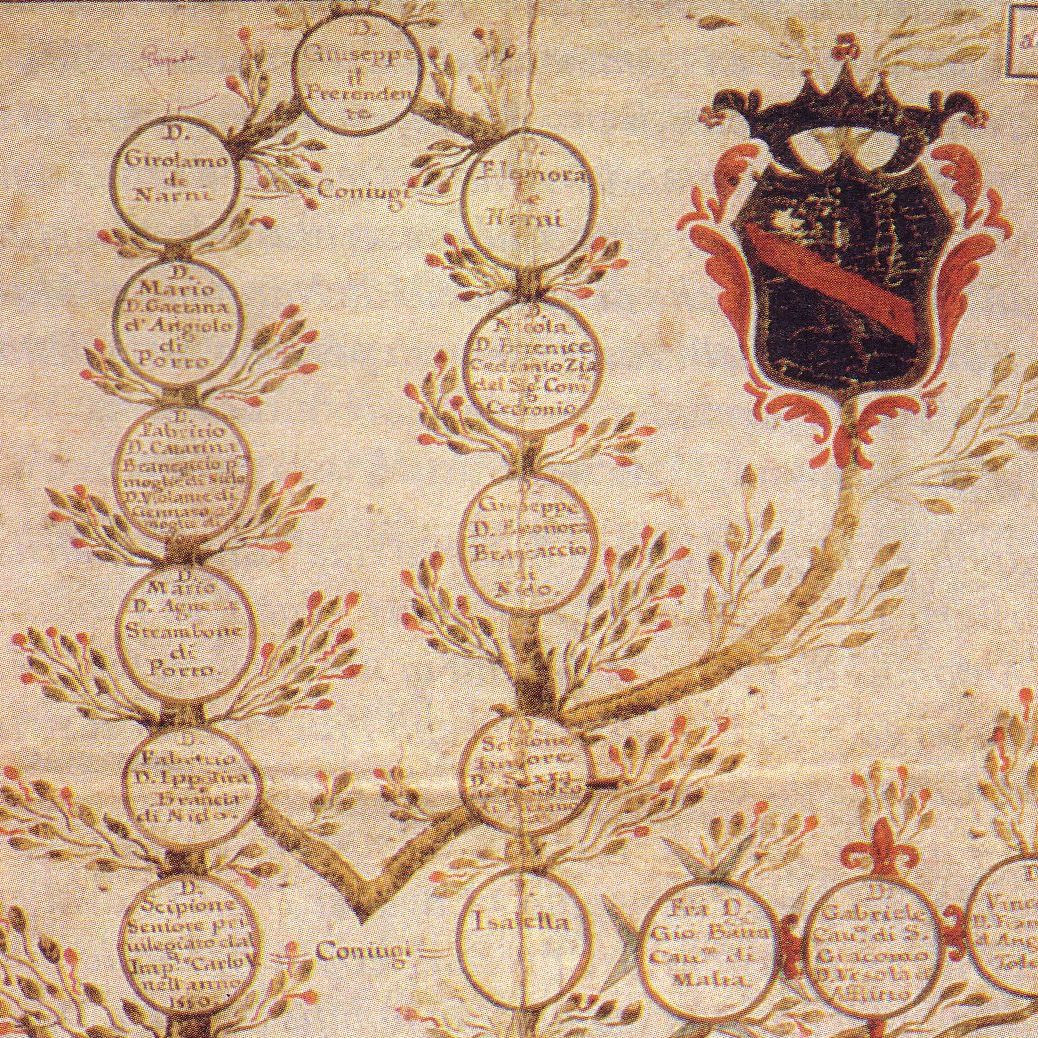 D.
Giuseppe
il
Pretenden
te
D.
Girolamo
de
Narni
Coniugi
D.
Eleonora
de
Narni
D.
Mario
D. Gaetana
d'Angiolo
di
Porto
D.
Nicola
D. Berenice
Cedronio Zia
del Sig. Con.
Cedronio
D.
Fabritio
D. Catarina
Brancaccio p.
moglie di Nido
D. Violante di
Gennaro
moglie
Giuseppe
D. Eleonora
Brancaccio
di
Nido.
D.
Mario
D. Agnesa
Strambone
di
Porto.
D.
Fabritio
D. Ippolita
Brancia
di Nido.
D.
Scipione
Iuniore
D.
D.
Scipione
Seniore pri
uilegiato dal
Imp. Carlo V.
nell'anno
1550
Coniugi
Isabella
Frà D.
Gio Batta
Cau. di
Malta.
D.
Gabriele
Cau. di S.
Giacomo
D. Vrsola
Afflitto
D.
Vince
D.
d'Ang